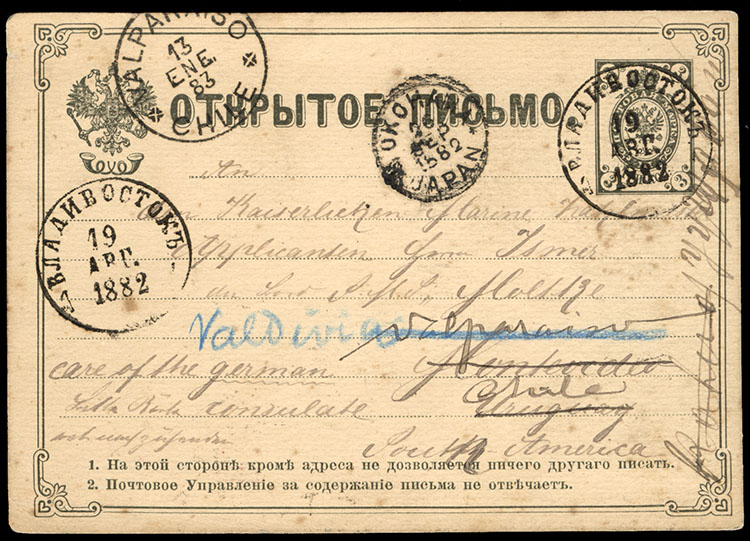 VALPARAISO
13
ENE
83
CHILE
ОТКРЫТОЕ ПИСЬМО
YOKOHAMA
1882
JAPAN
ВЛАДИВОСТОКЪ
19
АВГ.
1882
3
ВЛАДИВОСТОКЪ
19
АВГ.
1882
1
An
Kaiserlichen Marine
Applicanten Herrn Ismer
an Bord S.M.S. Moltke
Valdivia Valparaiso
care of the german Montevideo
Chile
Bitte consulate Uruguay
nachzusenden
South America
1. На этой сторонѣ кромѣ адреса не дозволяется ничего другаго писать.
2. Почтовое Управленіе за содержаніе письма не отвѣчаетъ.